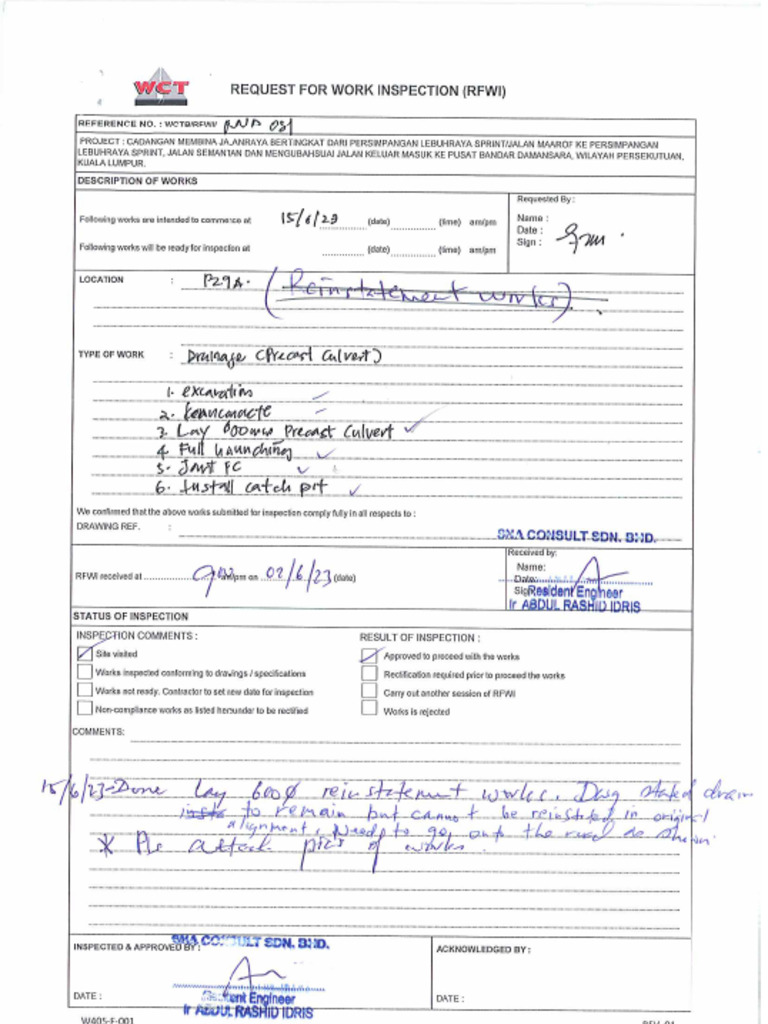 WCT
REQUEST FOR WORK INSPECTION (RFWI)
REFERENCE NO. : WCTB/RFWI/ 031
PROJECT : CADANGAN MEMBINA JALANRAYA BERTINGKAT DARI PERSIMPANGAN LEBUHRAYA SPRINT/JALAN MAAROF KE PERSIMPANGAN
LEBUHRAYA SPRINT, JALAN SEMANTAN DAN MENGUBAHSUAI JALAN KELUAR MASUK KE PUSAT BANDAR DAMANSARA, WILAYAH PERSEKUTUAN,
KUALA LUMPUR.
DESCRIPTION OF WORKS
Requested By :
Following works are intended to commence at 15/6/23 (date) (time) am/pm
Name :
Date :
Sign :
Following works will be ready for inspection at (date) (time) am/pm
LOCATION : P29A. (Reinstatement works).
TYPE OF WORK : Drainage (Precast Culvert)
1. excavation
2. Leanconcrete
3. Lay 600mm Precast Culvert
4. Full haunching
5. Joint FC
6. Install catch pit
We confirmed that the above works submitted for inspection comply fully in all respects to :
DRAWING REF. :
SMA CONSULT SDN. BHD.
Received by:
RFWI received at 9 am/pm on 02/6/23 (date)
Name:
Date:
Sign
Resident Engineer
Ir ABDUL RASHID IDRIS
STATUS OF INSPECTION
INSPECTION COMMENTS :
Site visited
Works inspected conforming to drawings / specifications
Works not ready. Contractor to set new date for inspection
Non-compliance works as listed hereunder to be rectified
RESULT OF INSPECTION :
Approved to proceed with the works
Rectification required prior to proceed the works
Carry out another session of RFWI
Works is rejected
COMMENTS:
15/6/23-Done lay 600ø reinstatement works. Dwg stated drain
to remain but cannot be reinstated in original
alignment. Needs to go onto the road as shown.
* Pls attach pics of works.
INSPECTED & APPROVED BY :
SMA CONSULT SDN. BHD.
DATE :
Resident Engineer
Ir ABDUL RASHID IDRIS
ACKNOWLEDGED BY :
DATE :
W405-F-001
REV. 01